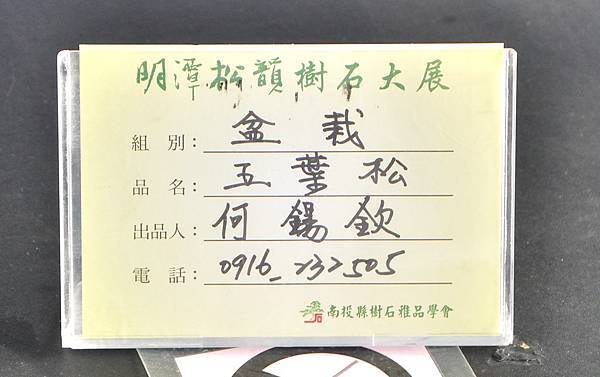 明潭松韻樹石大展
組別：盆栽
品名：五葉松
出品人：何錫欽
電話：0916-232505
南投縣樹石雅品學會